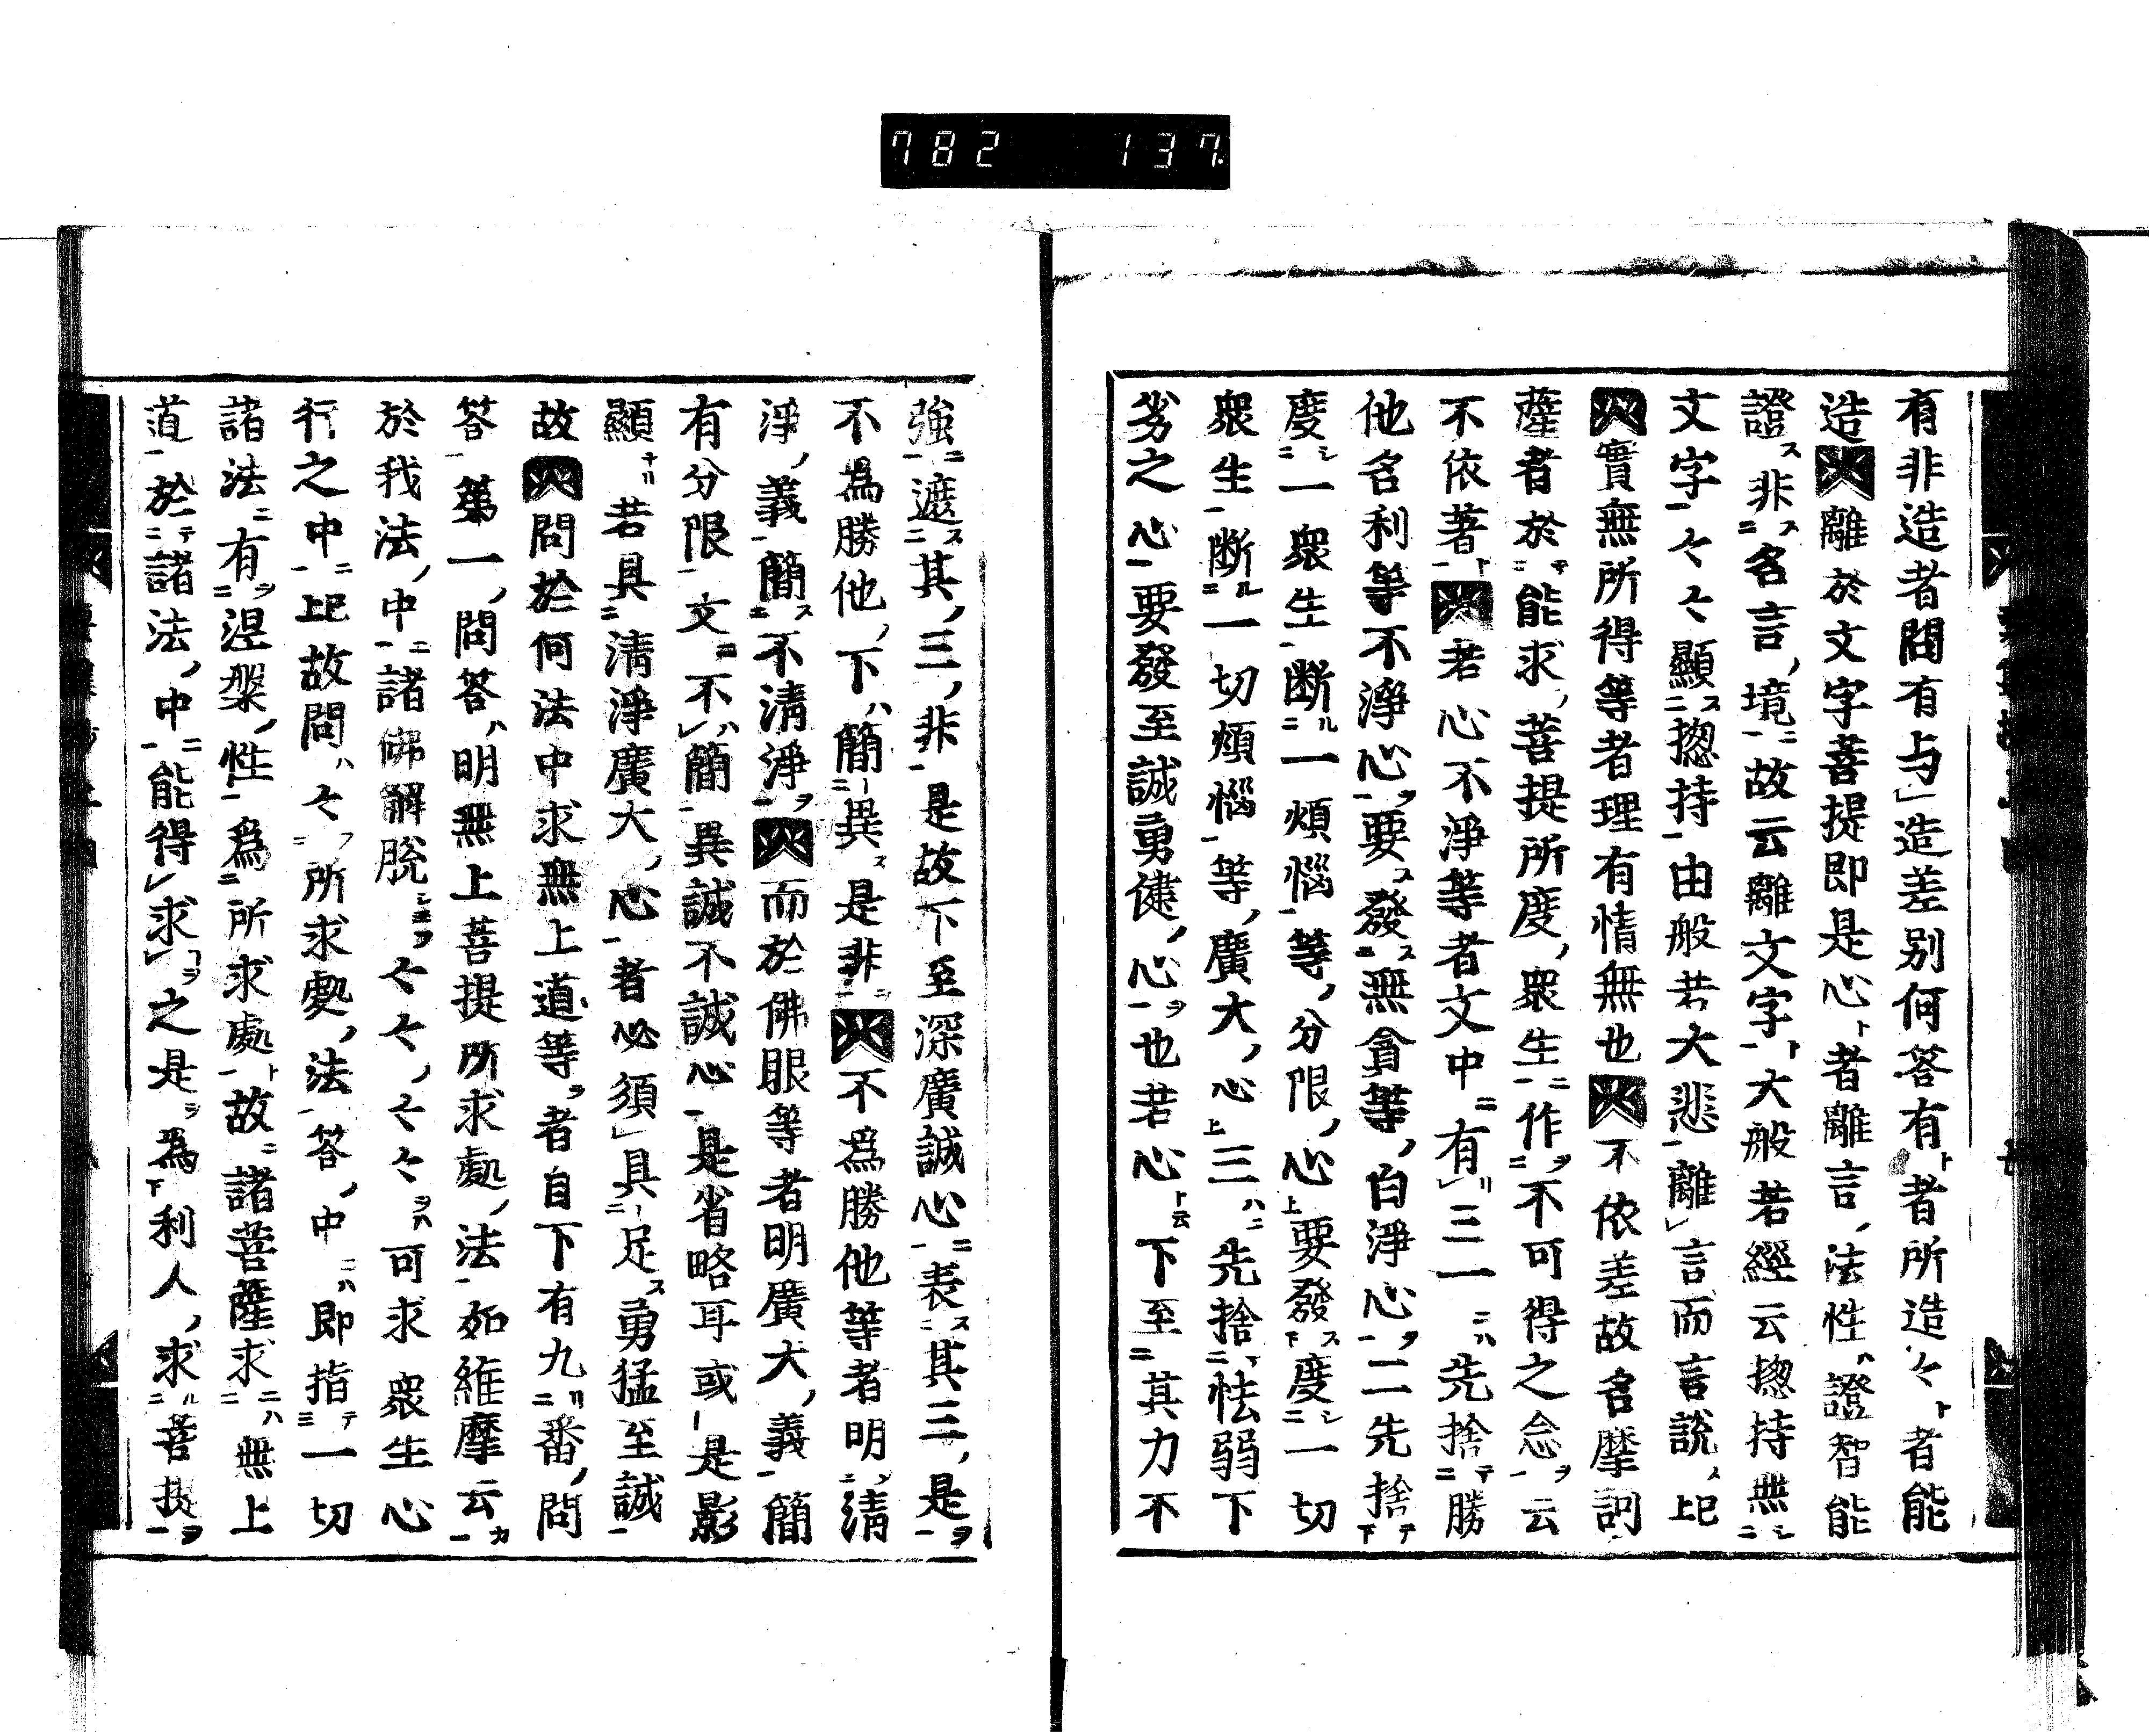 782 137
有非造者問有与造差別何答有者所造々者能
造離於文字菩提即是心者離言法性證智能
證非名言境故云離文字大般若經云揔持無
文字々々顯揔持由般若大悲離言而言說上已
實無所得等者理有情無也不依差故名摩訶
薩者於能求菩提所度衆生作不可得之念云
不依著若心不淨等者文中有三一先捨勝
他名利等不淨心要發無貪等白淨心二先捨
度一衆生断一煩惱等分限心要發度一切
衆生断一切煩惱等廣大心三先捨怯弱下
劣之心要發至誠勇健心也若心下至其力不
強遮其三非是故下至深廣誠心表其三是
不爲勝他下簡異是非不爲勝他等者明清
淨義簡不清淨而於佛眼等者明廣大義簡
有分限文不簡異誠不誠心是省略耳或是影
顯若具清淨廣大心者必須具足勇猛至誠
故問於何法中求無上道等者自下有九番問
答第一問答明無上菩提所求處法如維摩云
於我法中諸佛解脫々々々々可求衆生心
行之中上已故問々所求處法答中即指一切
諸法有涅槃性爲所求處故諸菩薩求無上
道於諸法中能得求之是為利人求菩提